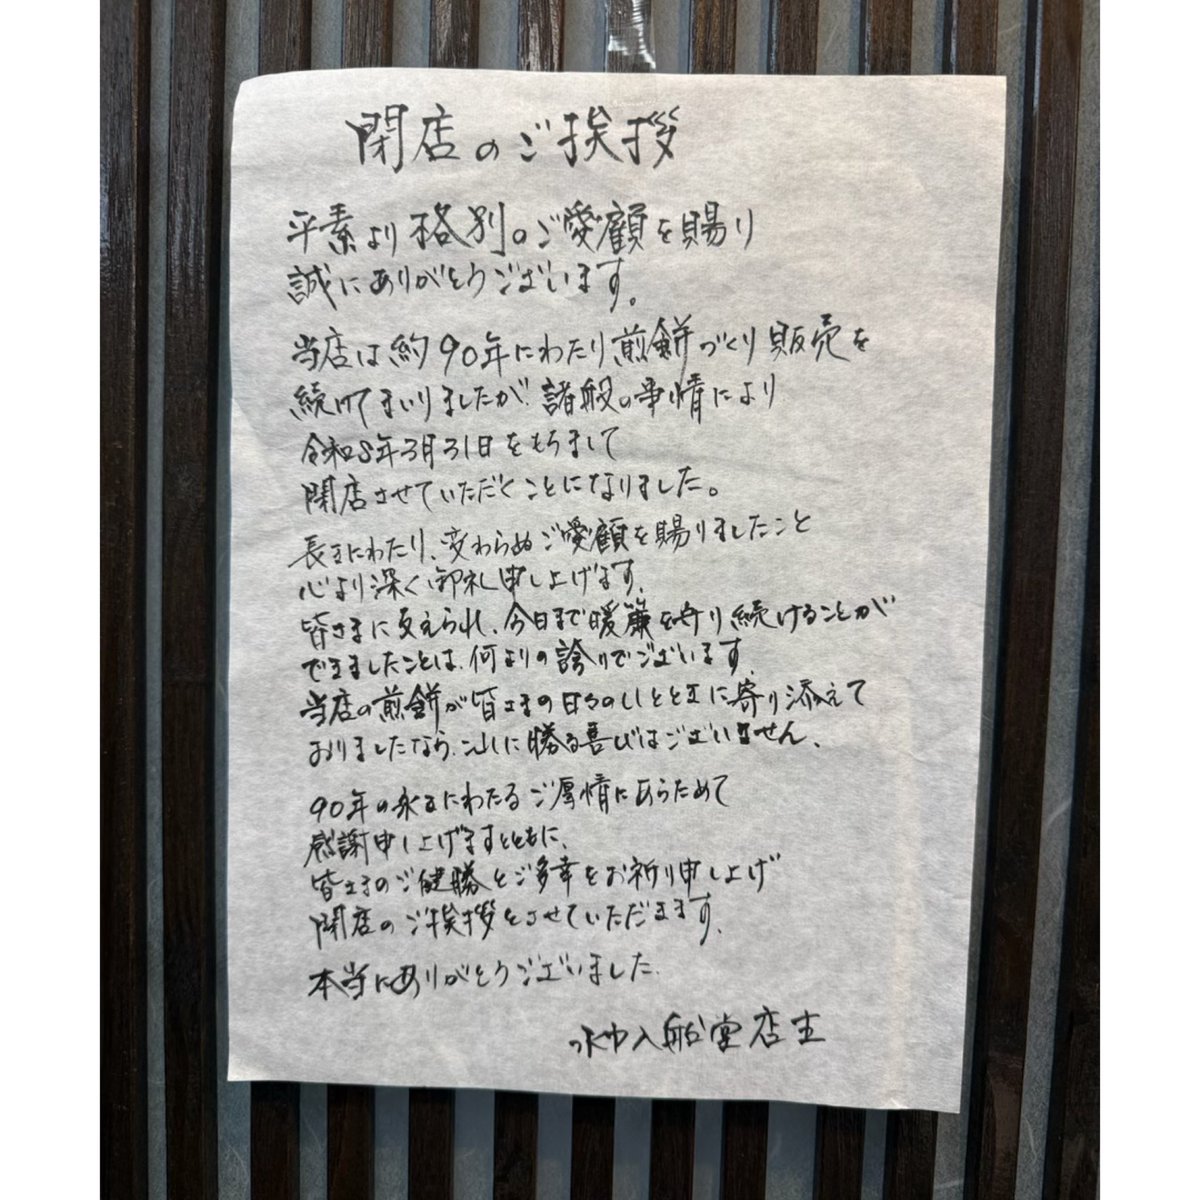 閉店のご挨拶
平素より格別のご愛顧を賜り
誠にありがとうございます。
当店は約90年にわたり煎餅づくり販売を
続けてまいりましたが、諸般の事情により
令和8年3月31日をもちまして
閉店させていただくことになりました。
長きにわたり、変わらぬご愛顧を賜りましたこと
心より深く御礼申し上げます。
皆さまに支えられ、今日まで暖簾を守り続けることが
できましたことは、何よりの誇りでございます。
当店の煎餅が皆さまの日々のひとときに寄り添えて
おりましたなら、これに勝る喜びはございません。
90年の永きにわたるご厚情にあらためて
感謝申し上げますとともに、
皆さまのご健勝とご多幸をお祈り申し上げ
閉店のご挨拶とさせていただきます。
本当にありがとうございました。
入船堂店主